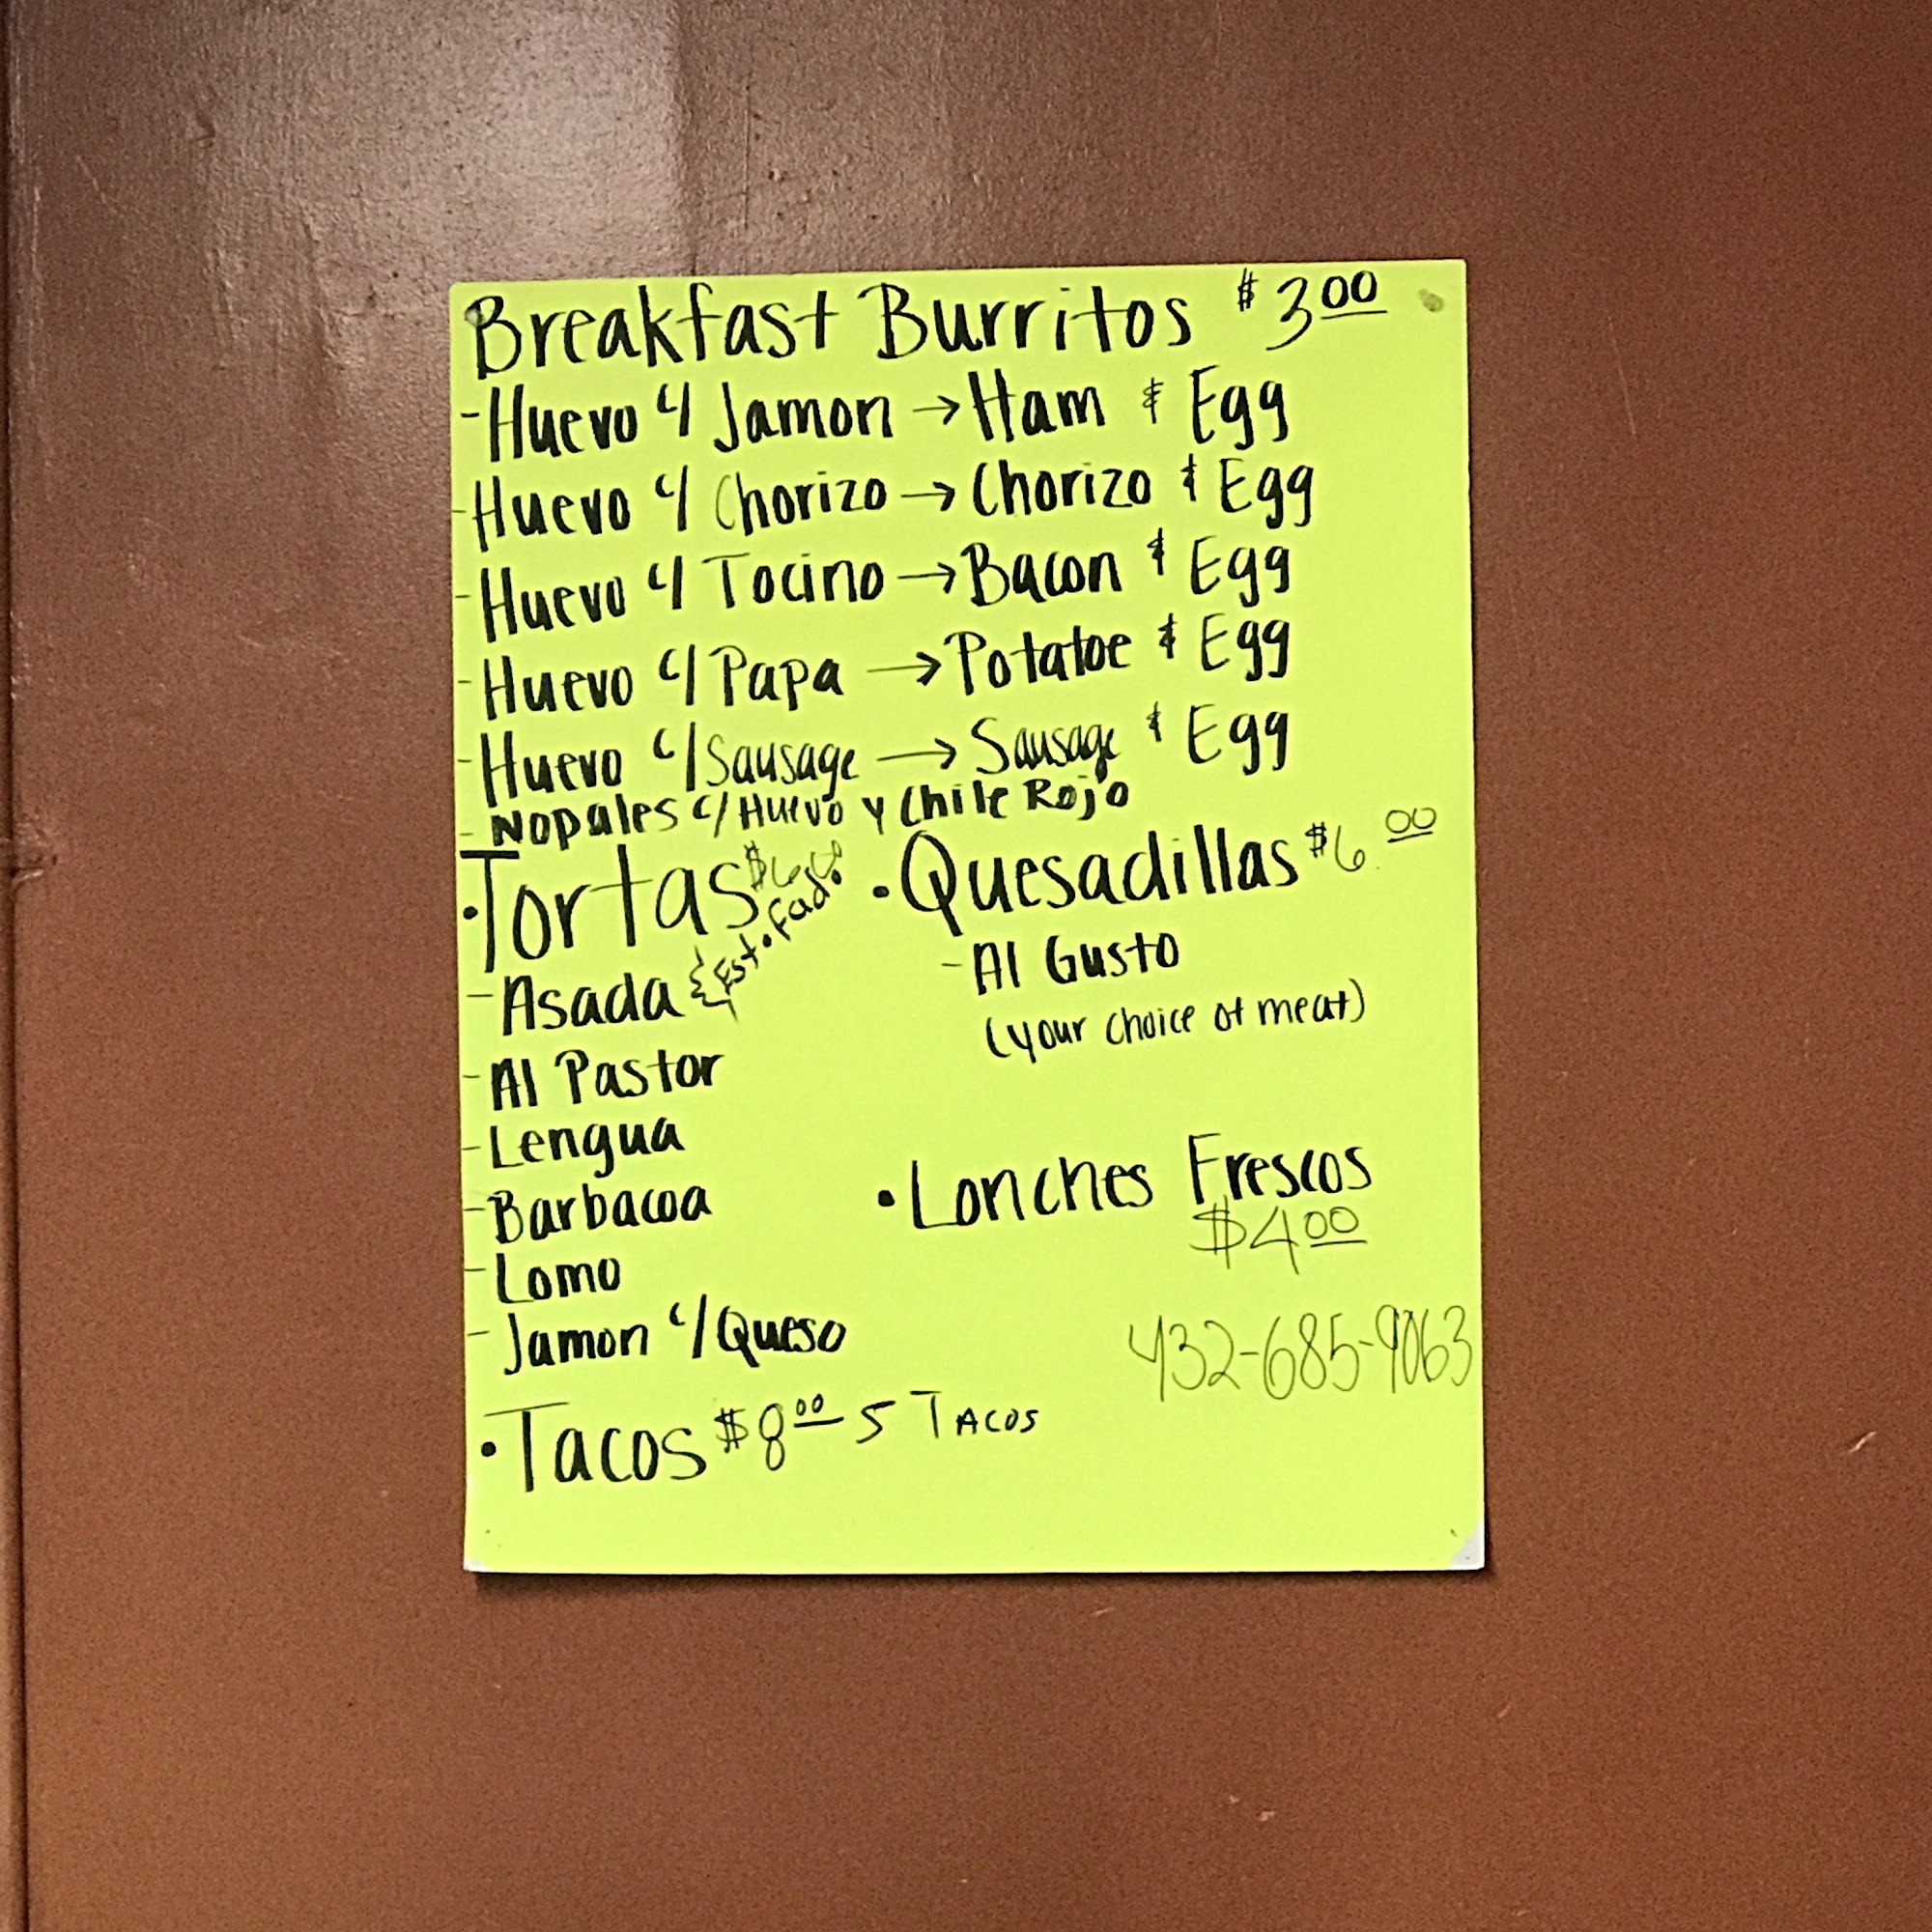 Breakfast Burritos $3.00
- Huevo c/ Jamon → Ham & Egg
- Huevo c/ Chorizo → Chorizo & Egg
- Huevo c/ Tocino → Bacon & Egg
- Huevo c/ Papa → Potatoe & Egg
- Huevo c/ Sausage → Sausage & Egg
- Nopales c/ Huevo y Chile Rojo
• Tortas $6.00
- Asada { Estofado
- Al Pastor
- Lengua
- Barbacoa
- Lomo
- Jamon c/ Queso
• Quesadillas $6.00
- Al Gusto
(your choice of meat)
• Lonches Frescos
$4.00
432-685-9063
• Tacos $8.00 5 Tacos